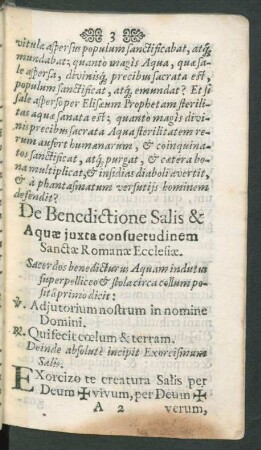 3
vitulæ aspersus populum sanctificabat, atq́;
mundabat: quanto magis Aqua, quæ sa-
le aspersa, divinisq́; precibus sacrata est,
populum sanctificat, atq́; emundat? Et si
sale asperso per Elisæum Prophetam sterili-
tas aquæ sanata est: quanto magis divi-
nis precibus sacrata Aqua sterilitatem re-
rum aufert humanarum, & coinquina-
tos sanctificat, atq́; purgat, & cætera bo-
na multiplicat, & insidias diaboli avertit,
& à phantasmatum versutijs hominem
defendit?
De Benedictione Salis &
Aquæ juxta consuetudinem
Sanctæ Romanæ Ecclesiæ.
Sacerdos benedicturus Aquam indutus
superpelliceo & stola circa collum po-
sitâ primo dicit:
℣. Adjutorium nostrum in nomine
Domini.
℟. Qui fecit cœlum & terram.
Deinde absolutè incipit Exorcismum
Salis.
EXorcizo te creatura Salis per
Deum ✠ vivum, per Deum ✠
A 2 verum,